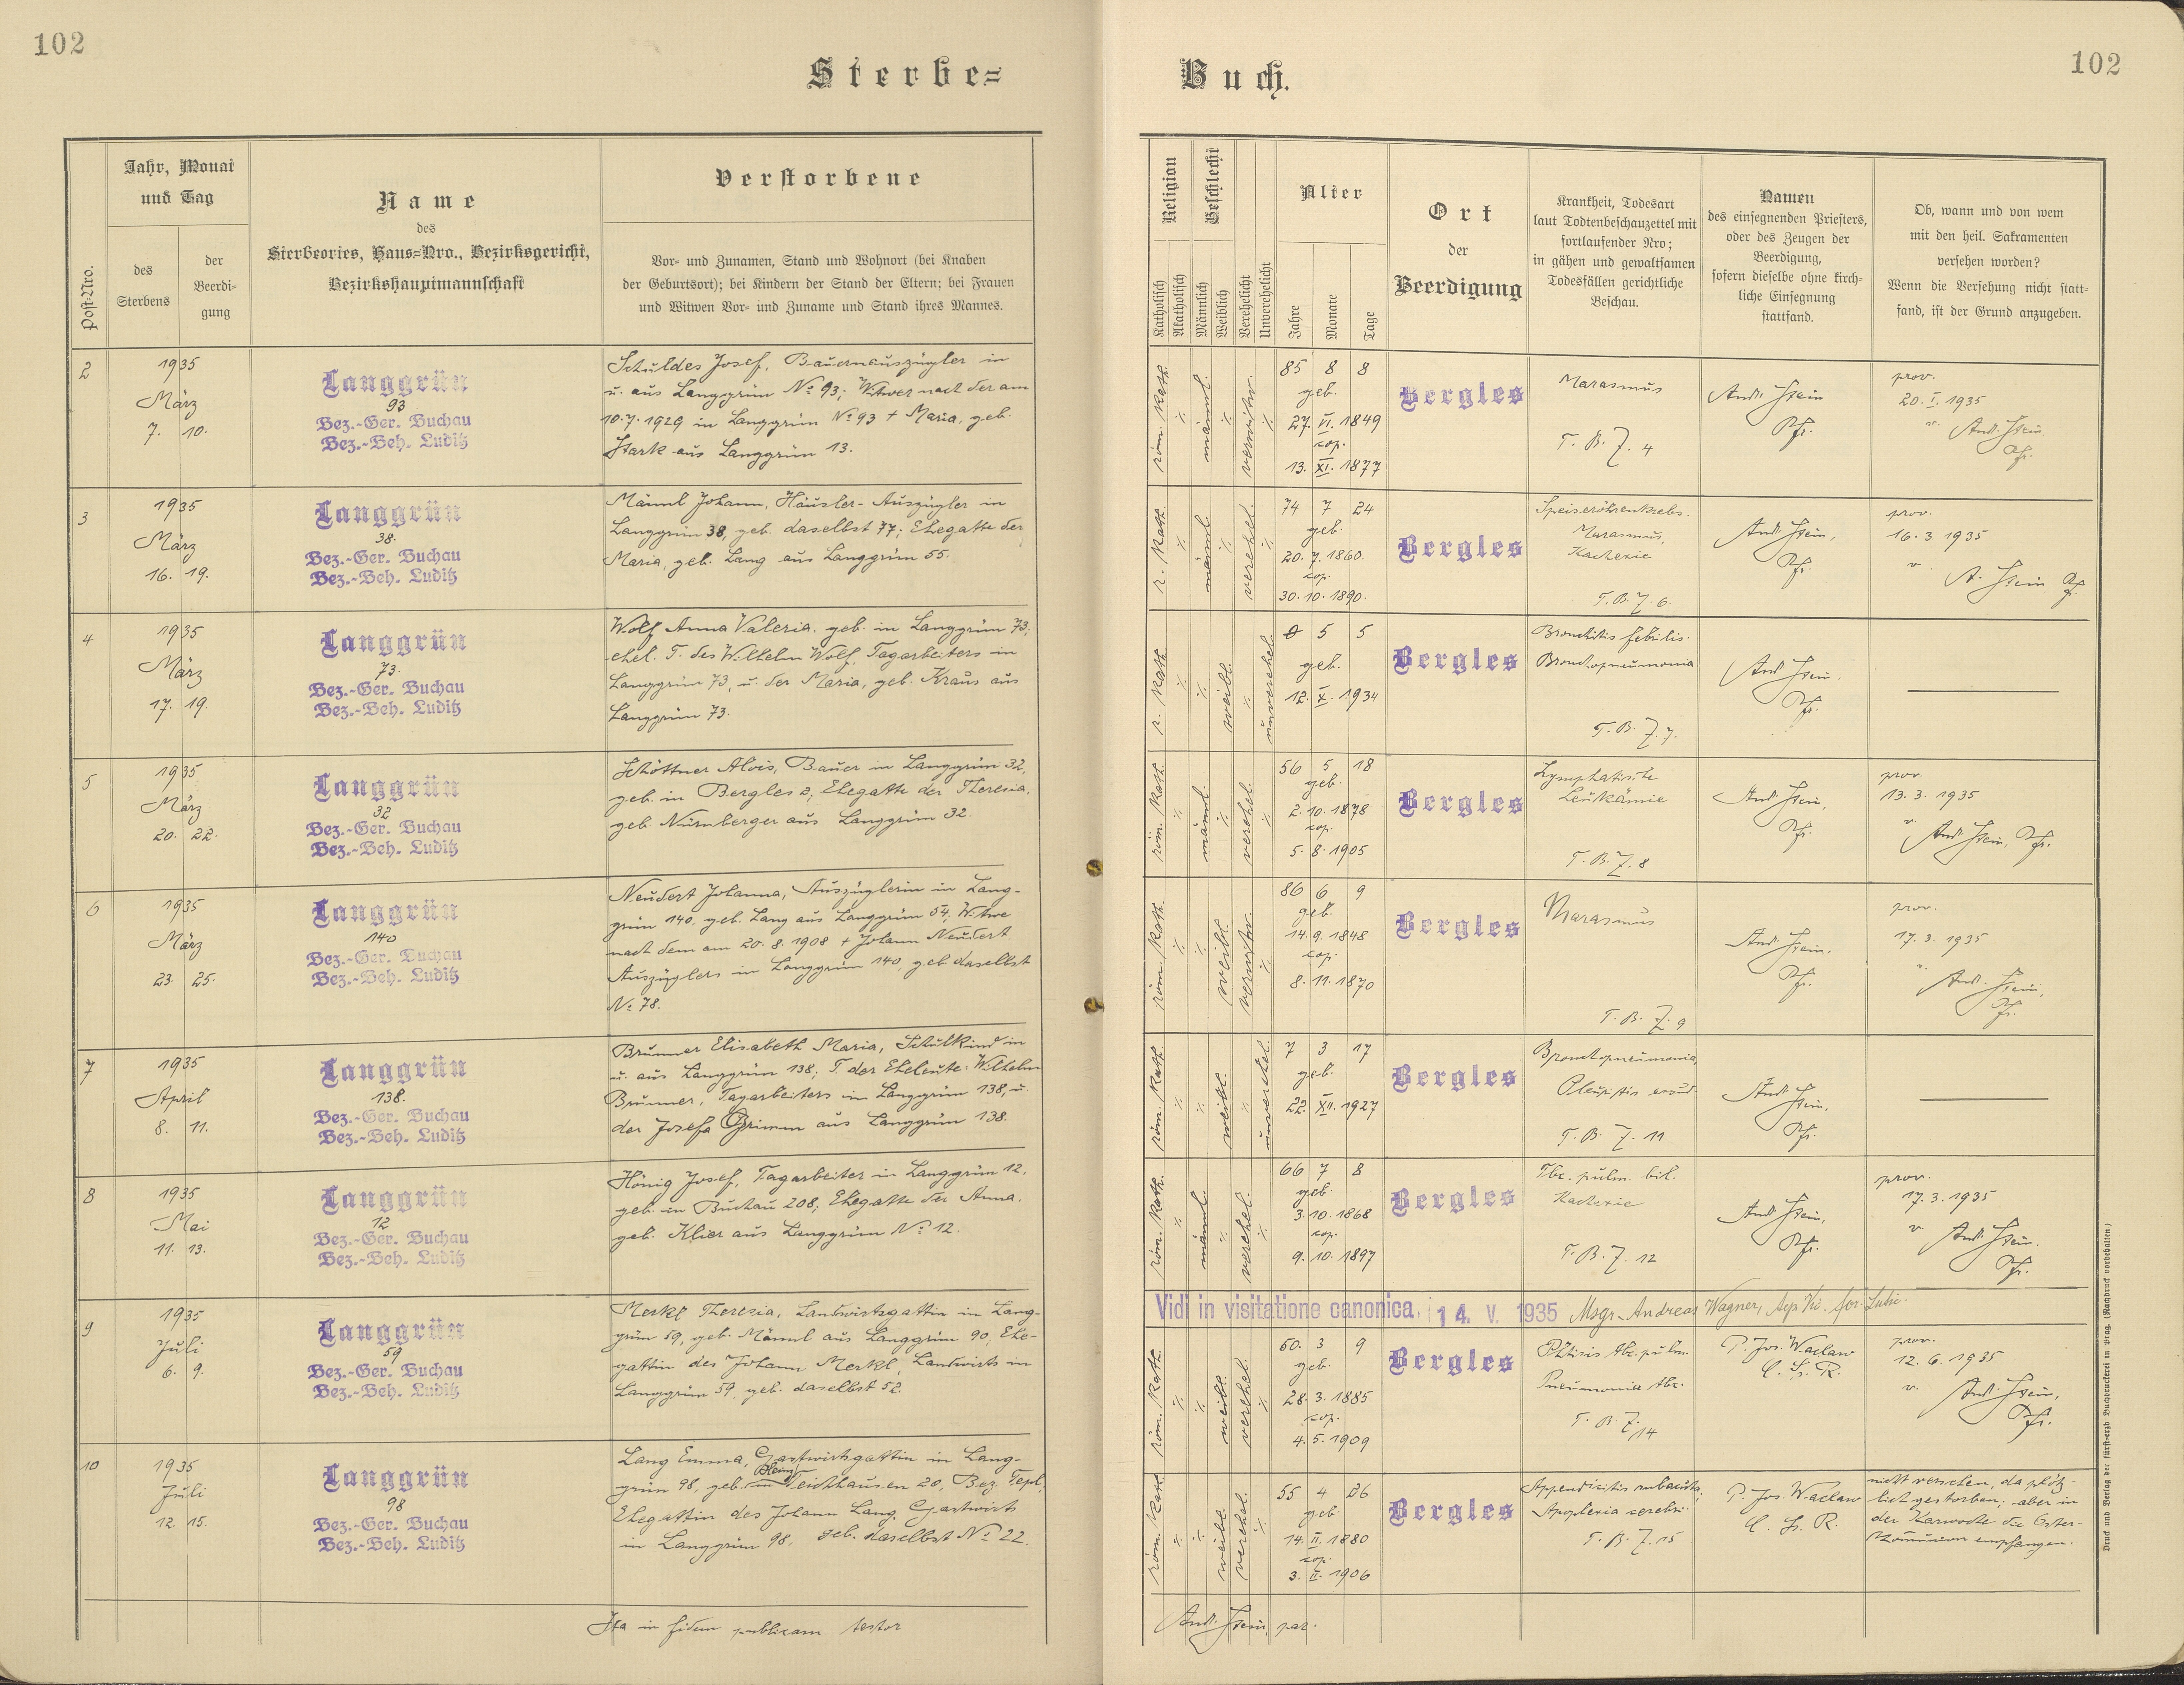 102
102
Sterbe=
Buch.
Post-Nro.
Jahr, Monat
und Tag
des
Sterbens
der
Beerdi-
gung
Name
des
Sterbeortes, Haus=Nro., Bezirksgericht,
Bezirkshauptmannschaft
Verstorbene
Vor- und Zunamen, Stand und Wohnort (bei Knaben
der Geburtsort); bei Kindern der Stand der Eltern; bei Frauen
und Witwen Vor- und Zuname und Stand ihres Mannes.
Religion
Katholisch
Akatholisch
Geschlecht
Männlich
Weiblich
Verehelicht
Unverehelicht
Alter
Jahre
Monate
Tage
Ort
der
Beerdigung
Krankheit, Todesart
laut Todtenbeschauzettel mit
fortlaufender Nro;
in gähen und gewaltsamen
Todesfällen gerichtliche
Beschau.
Namen
des einsegnenden Priesters,
oder des Zeugen der
Beerdigung,
sofern dieselbe ohne kirch-
liche Einsegnung
stattfand.
Ob, wann und von wem
mit den heil. Sakramenten
versehen worden?
Wenn die Versehung nicht statt-
fand, ist der Grund anzugeben.
2
1935
März
7. 10.
Langgrün
93
Bez.-Ger. Buchau
Bez.-Beh. Luditz
Schuldes Josef, Bauernauszügler in
u. aus Langgrün No 93; Witwer nach der am
10.7.1929 in Langgrün No 93 + Maria, geb.
Stark aus Langgrün 13.
röm. kath.
männl.
verwitw.
85 8 8
geb.
27. VI. 1849
cop.
13. XI. 1877
Bergles
Marasmus
T. B. Z. 4
And. Stein
Pfr.
prov.
20. I. 1935
v. And. Stein
Pfr.
3
1935
März
16. 19.
Langgrün
38.
Bez.-Ger. Buchau
Bez.-Beh. Luditz
Männl Johann, Häusler-Auszügler in
Langgrün 38, geb. daselbst 77; Ehegatte der
Maria, geb. Lang aus Langgrün 55.
r. kath.
männl.
verehel.
74 7 24
geb.
20. 7. 1860.
cop.
30. 10. 1890.
Bergles
Speiseröhrenkrebs.
Marasmus,
Kachexie
T. B. Z. 6.
And. Stein,
Pfr.
prov.
16. 3 1935
v. A. Stein Pfr.
4
1935
März
17. 19.
Langgrün
73.
Bez.-Ger. Buchau
Bez.-Beh. Luditz
Wolf Anna Valeria. geb. in Langgrün 73;
ehel. T. des Wilhelm Wolf, Tagarbeiters in
Langgrün 73, u. der Maria, geb. Kraus aus
Langgrün 73.
r. kath.
weibl.
unverehel.
0 5 5
geb.
12. X. 1934
Bergles
Bronchitis febrilis.
Bronchopneumonia
T. B. Z. 7.
And. Stein.
Pfr.
5
1935
März
20. 22.
Langgrün
32
Bez.-Ger. Buchau
Bez.-Beh. Luditz
Schöttner Alois, Bauer in Langgrün 32,
geb. in Bergles 2, Ehegatte der Theresia,
geb. Nürnberger aus Langgrün 32.
röm. kath.
männl.
verehel.
56 5 18
geb.
2. 10. 1878
cop.
5. 8. 1905
Bergles
Lymphatische
Leukämie
T. B. Z. 8
And. Stein,
Pfr.
prov.
13. 3. 1935
v. And. Stein, Pfr.
6
1935
März
23. 25.
Langgrün
140
Bez.-Ger. Buchau
Bez.-Beh. Luditz
Neudert Johanna, Auszüglerin in Lang-
grün 140, geb. Lang aus Langgrün 54, Witwe
nach dem am 20. 8. 1908 + Johann Neudert
Auszüglers in Langgrün 140, geb. daselbst
No 78.
röm. kath.
weibl.
verwitw.
86 6 9
geb.
14. 9. 1848
cop.
8. 11. 1870
Bergles
Marasmus
T. B. Z. 9
And. Stein,
Pfr.
prov.
17. 3. 1935
v. And. Stein,
Pfr.
7
1935
April
8. 11.
Langgrün
138.
Bez.-Ger. Buchau
Bez.-Beh. Luditz
Brunner Elisabeth Maria, Schulkind in
u. aus Langgrün 138; T. der Eheleute: Wilhelm
Brunner, Tagarbeiters in Langgrün 138, u.
der Josefa Grimm aus Langgrün 138.
röm. kath.
weibl.
unverehel.
7 3 17
geb.
22. XII. 1927
Bergles
Bronchopneumonia,
Pleuritis exsud.
T. B. Z. 11
And. Stein,
Pfr.
8
1935
Mai
11. 13.
Langgrün
12
Bez.-Ger. Buchau
Bez.-Beh. Luditz
Hönig Josef, Tagarbeiter in Langgrün 12,
geb. in Buchau 208, Ehegatte der Anna,
geb. Klier aus Langgrün No 12.
röm. kath.
männl.
verehel.
66 7 8
geb.
3. 10. 1868
cop.
9. 10. 1897
Bergles
Tbc. pulm. bil.
Kachexie
T. B. Z. 12
And. Stein,
Pfr.
prov.
17. 3. 1935
v. And. Stein.
Pfr.
Vidi in visitatione canonica, 14. V. 1935 Msgr. Andreas Wagner,
9
1935
Juli
6. 9.
Langgrün
59
Bez.-Ger. Buchau
Bez.-Beh. Luditz
Merkl Theresia, Landwirtsgattin in Lang-
grün 59, geb. Männl aus Langgrün 90, Ehe-
gattin des Johann Merkl, Landwirts in
Langgrün 59, geb. daselbst 52.
röm. kath.
weibl.
verehel.
50. 3 9
geb.
28. 3. 1885
cop.
4. 5. 1909
Bergles
Phtisis tbc. pulm.
Pneumonia tbc.
T. B. Z. 14
P. Jos. Waclaw
C. Ss. R.
prov.
12. 6. 1935
v. And. Stein,
Pfr.
10
1935
Juli
12. 15.
Langgrün
98
Bez.-Ger. Buchau
Bez.-Beh. Luditz
Lang Emma, Gastwirtsgattin in Lang-
grün 98, geb. in Teichhausen 20, Bez. Tepl,
Ehegattin des Johann Lang, Gastwirts
in Langgrün 98, geb. daselbst No 22.
röm. kath.
weibl.
verehel.
55 4 26
geb.
14. II. 1880
cop.
3. II. 1906
Bergles
Appendicitis subacuta,
Apoplexia cerebri
T. B. Z. 15
P. Jos. Waclaw
C. Ss. R.
nicht versehen, da plötz-
lich gestorben; aber in
der Karwoche die Oster-
kommunion empfangen.
Ita in fidem publicam testor
And. Stein, par.
Druck und Verlag der fürst-erzb. Buchdruckerei in Prag. (Nachdruck vorbehalten.)